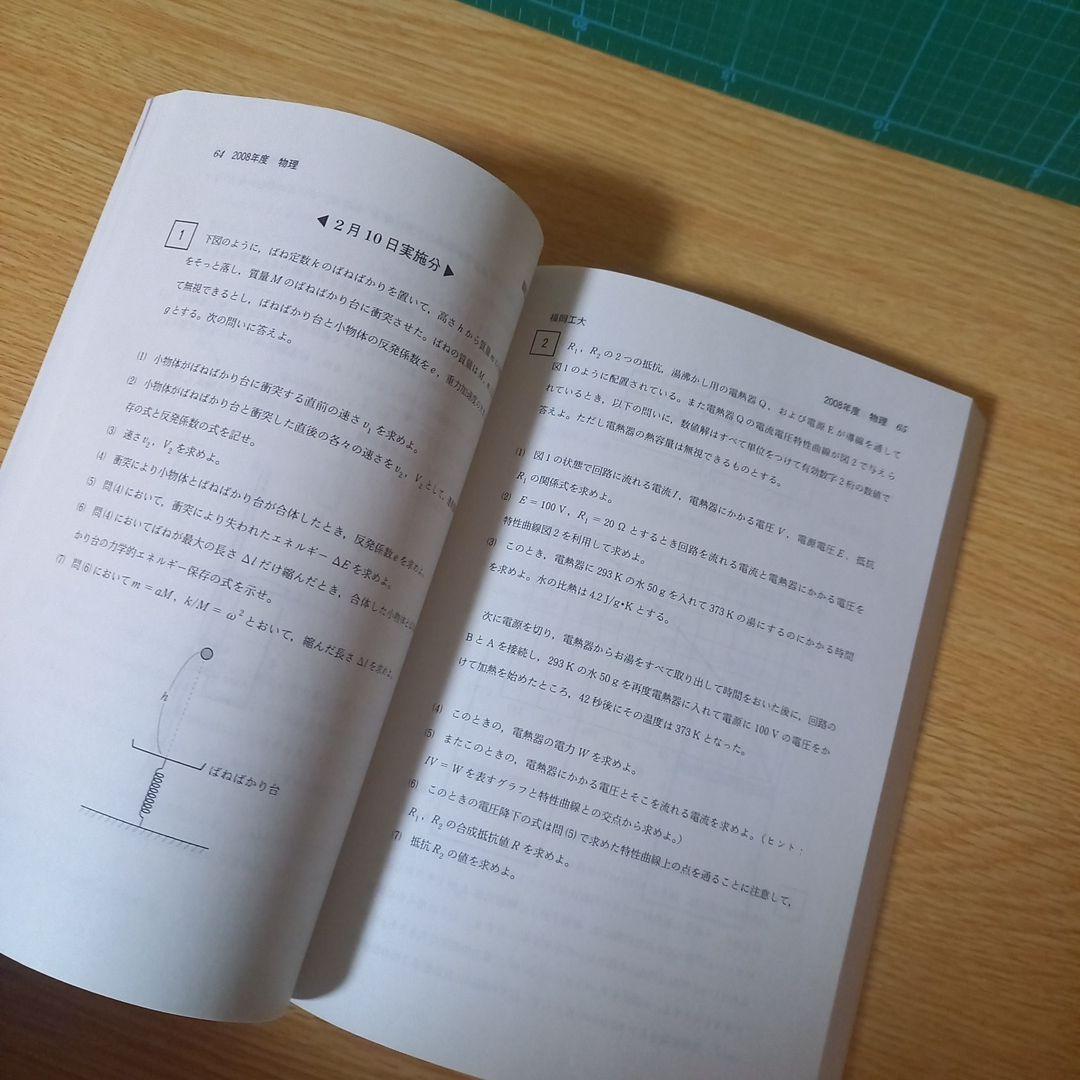 64 2008年度 物理
◀ 2月10日実施分 ▶
1
下図のように，ばね定数kのばねばかりを置いて，高さhから質量
をそっと落し，質量Mのばねばかり台に衝突させた。ばねの質量はM，
て無視できるとし，ばねばかり台と小物体の反発係数をe，重力加速度の
gとする。次の問いに答えよ。
(1) 小物体がばねばかり台に衝突する直前の速さv₁を求めよ。
(2) 小物体がばねばかり台と衝突した直後の各々の速さをv₂，V₂として，
存の式と反発係数の式を記せ。
(3) 速さv₂，V₂を求めよ。
(4) 衝突により小物体とばねばかり台が合体したとき，反発係数eを求めよ。
(5) 問(4)において，衝突により失われたエネルギーΔEを求めよ。
(6) 問(4)においてばねが最大の長さΔlだけ縮んだとき，合体した小物体と
かり台の力学的エネルギー保存の式を示せ。
(7) 問(6)においてm＝aM，k/M＝ω²とおいて，縮んだ長さΔlを求めよ。
h
ばねばかり台
福岡工大
2008年度 物理 65
2
R₁，R₂の2つの抵抗，湯沸かし用の電熱器Q，および電源Eが導線を通して
図1のように配置されている。また電熱器Qの電流電圧特性曲線が図2で与えら
れているとき，以下の問いに，数値解はすべて単位をつけて有効数字2桁の数値で
答えよ。ただし電熱器の熱容量は無視できるものとする。
(1) 図1の状態で回路に流れる電流I，電熱器にかかる電圧V，電源電圧E，抵抗
R₁の関係式を求めよ。
(2) E＝100V，R₁＝20Ωとするとき回路を流れる電流と電熱器にかかる電圧を
特性曲線図2を利用して求めよ。
(3) このとき，電熱器に293Kの水50gを入れて373Kの湯にするのにかかる時間
を求めよ。水の比熱は4.2J/g•Kとする。
次に電源を切り，電熱器からお湯をすべて取り出して時間をおいた後に，回路の
BとAを接続し，293Kの水50gを再度電熱器に入れて電源に100Vの電圧をか
けて加熱を始めたところ，42秒後にその温度は373Kとなった。
(4) このときの，電熱器の電力Wを求めよ。
(5) またこのときの，電熱器にかかる電圧とそこを流れる電流を求めよ。(ヒント：
IV＝Wを表すグラフと特性曲線との交点から求めよ。)
(6) このときの電圧降下の式は問(5)で求めた特性曲線上の点を通ることに注意して，
R₁，R₂の合成抵抗値Rを求めよ。
(7) 抵抗R₂の値を求めよ。